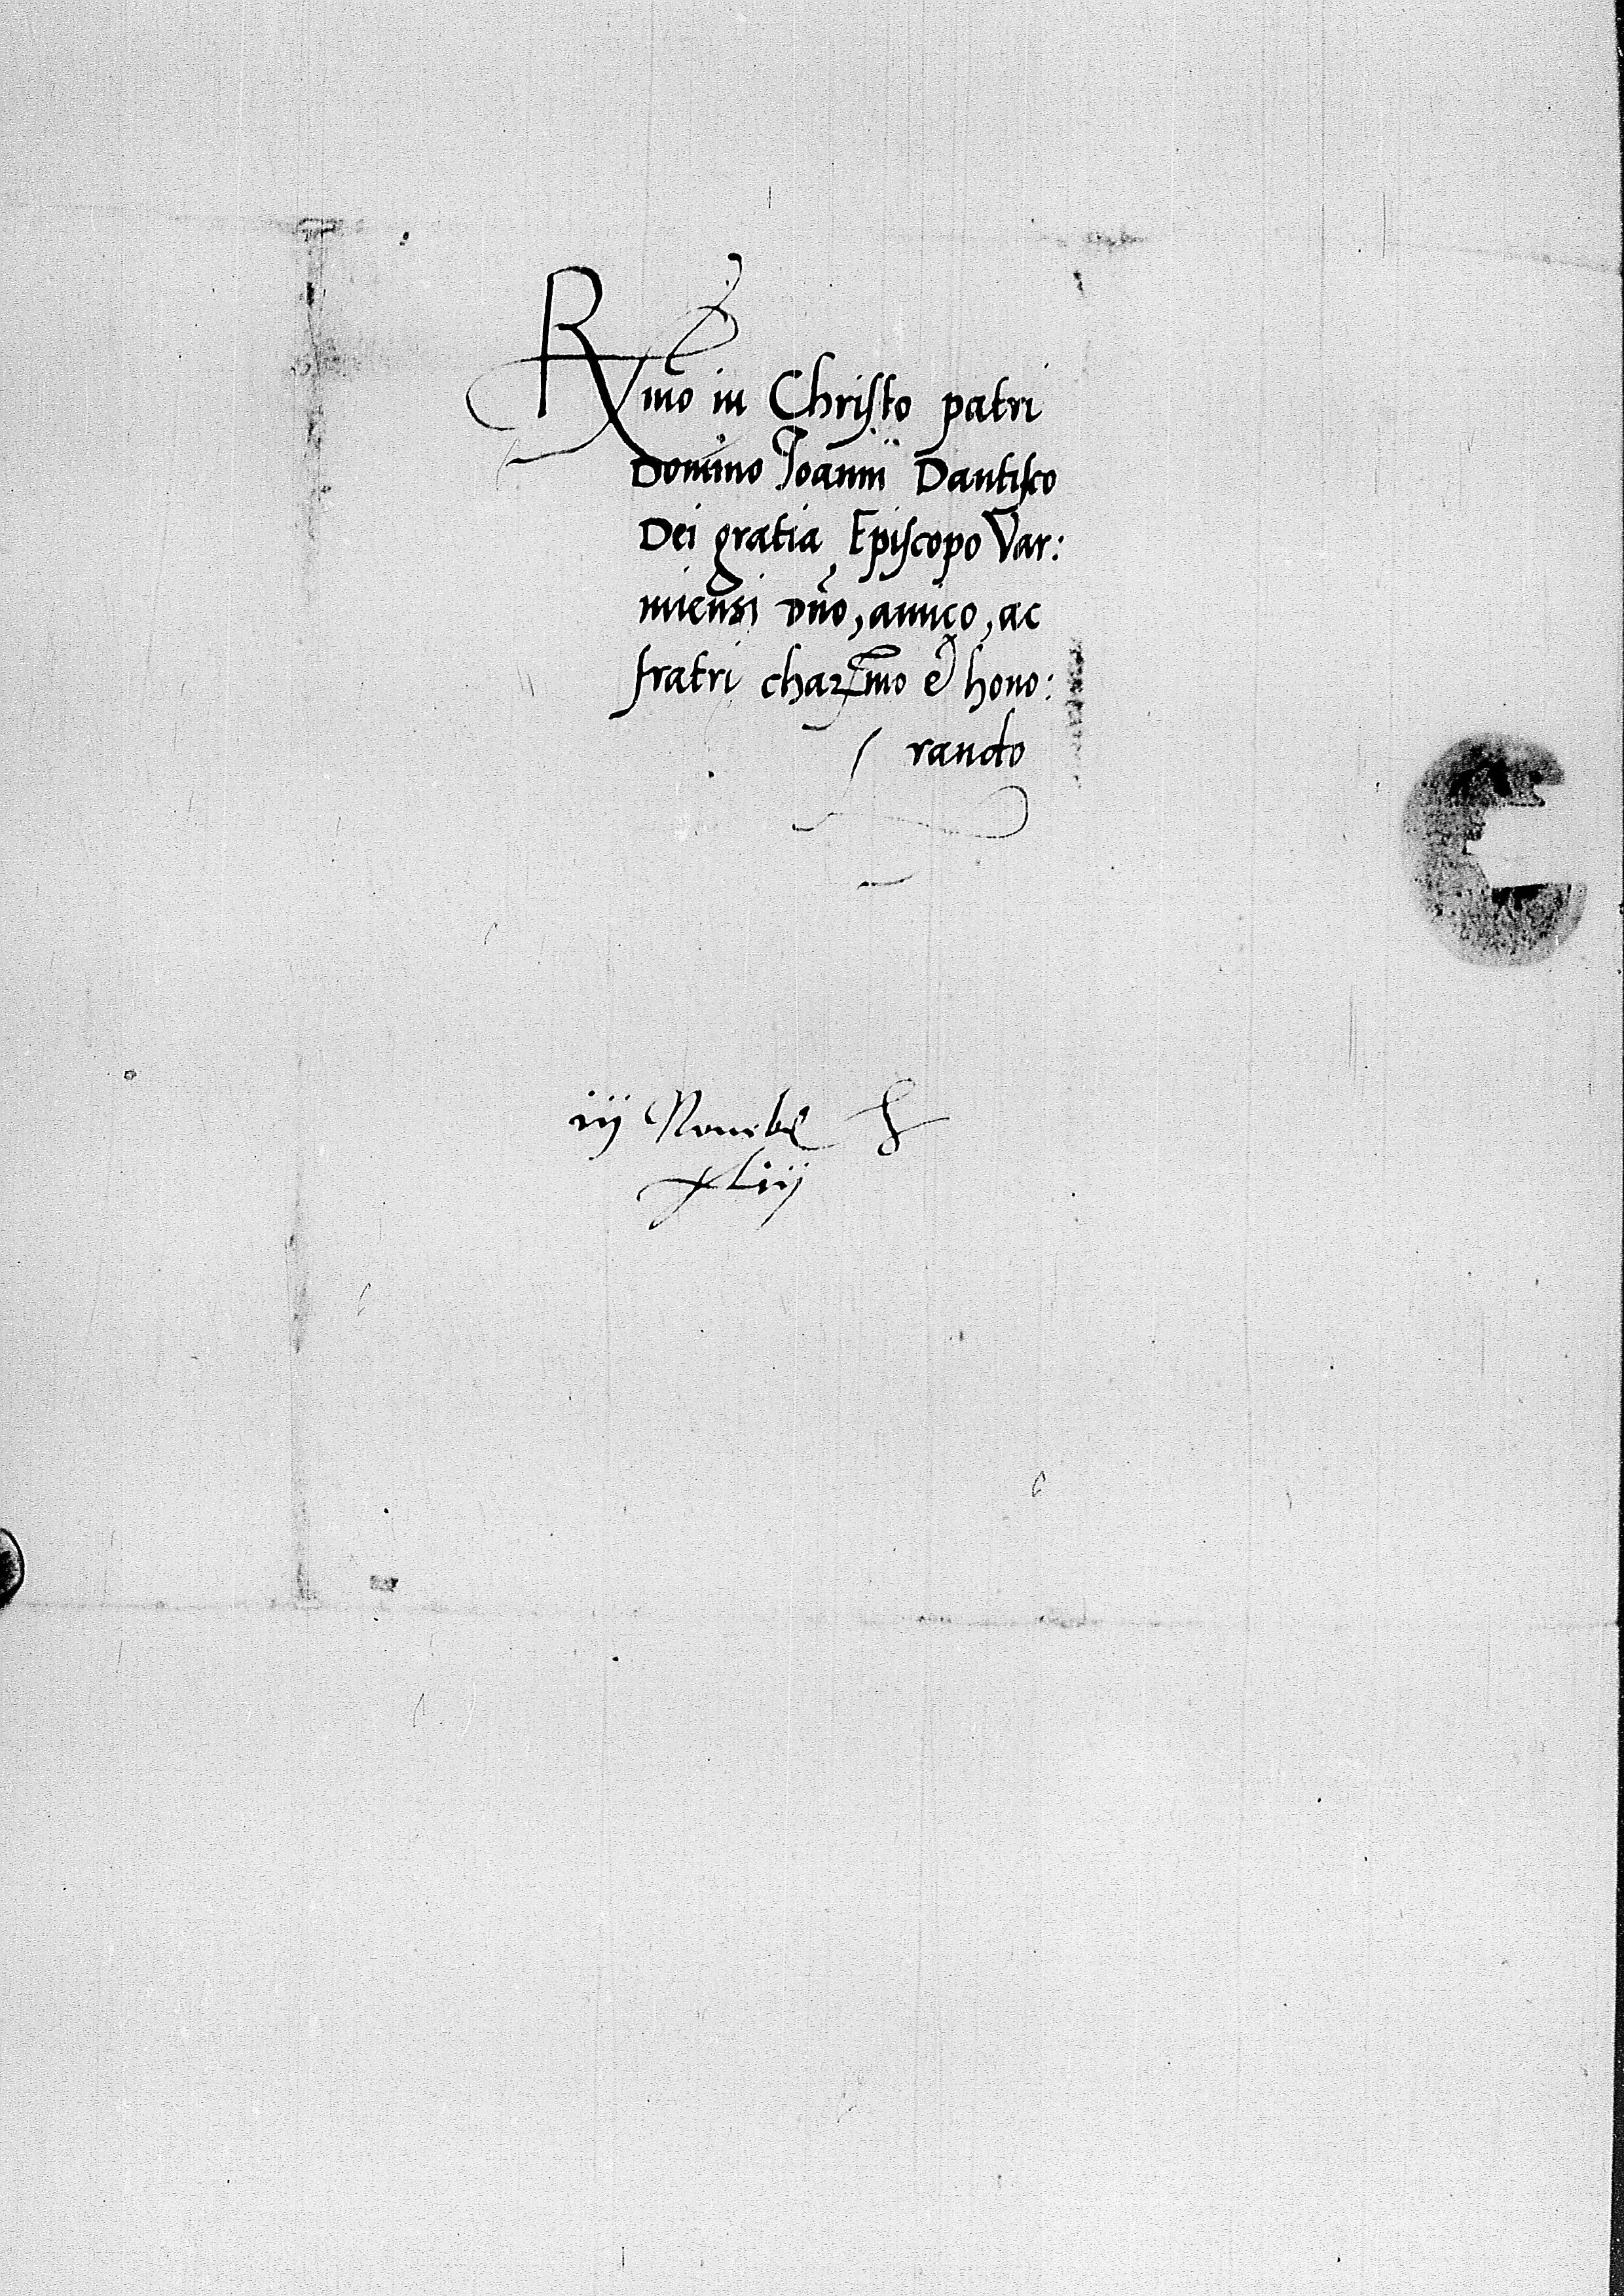 Rmo in Christo patri
Domino Joanni Dantisco
Dei gratia Episcopo Var:
miensi dño, amico, ac
fratri charmo et hono:
rando
iij Nouēbr
xliij